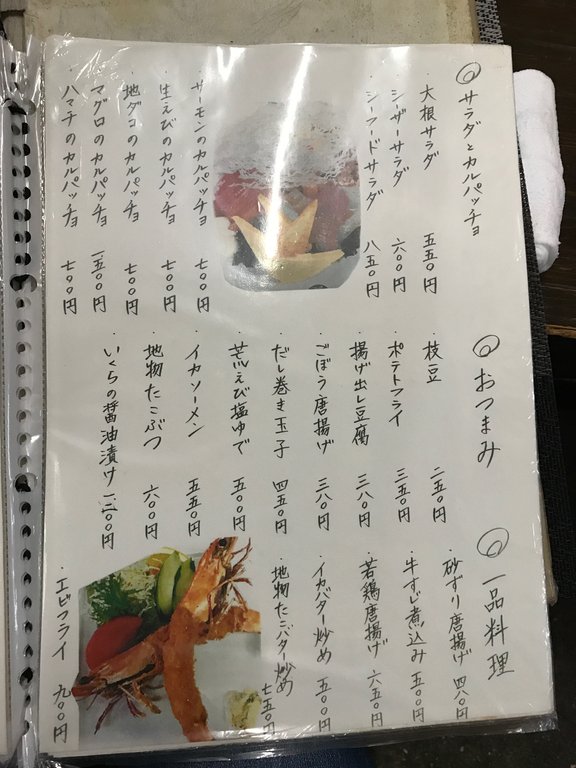 ◎サラダとカルパッチョ
・大根サラダ 五五〇円
・シーザーサラダ 六〇〇円
・シーフードサラダ 八五〇円
・サーモンのカルパッチョ 七〇〇円
・生えびのカルパッチョ 七〇〇円
・地ダコのカルパッチョ 七〇〇円
・マグロのカルパッチョ 一五〇〇円
・ハマチのカルパッチョ 七〇〇円
◎おつまみ
・枝豆 二五〇円
・ポテトフライ 三五〇円
・揚げ出し豆腐 三八〇円
・ごぼう唐揚げ 三八〇円
・だし巻き玉子 四五〇円
・荒えび塩ゆで 五〇〇円
・イカソーメン 五五〇円
・地物たこぶつ 六〇〇円
・いくらの醤油漬け 一二〇〇円
◎一品料理
・砂ずり唐揚げ 四八〇円
・牛すじ煮込み 五〇〇円
・若鶏唐揚げ 六五〇円
・イカバター炒め 五〇〇円
・地物たこバター炒め 七五〇円
・エビフライ 九〇〇円